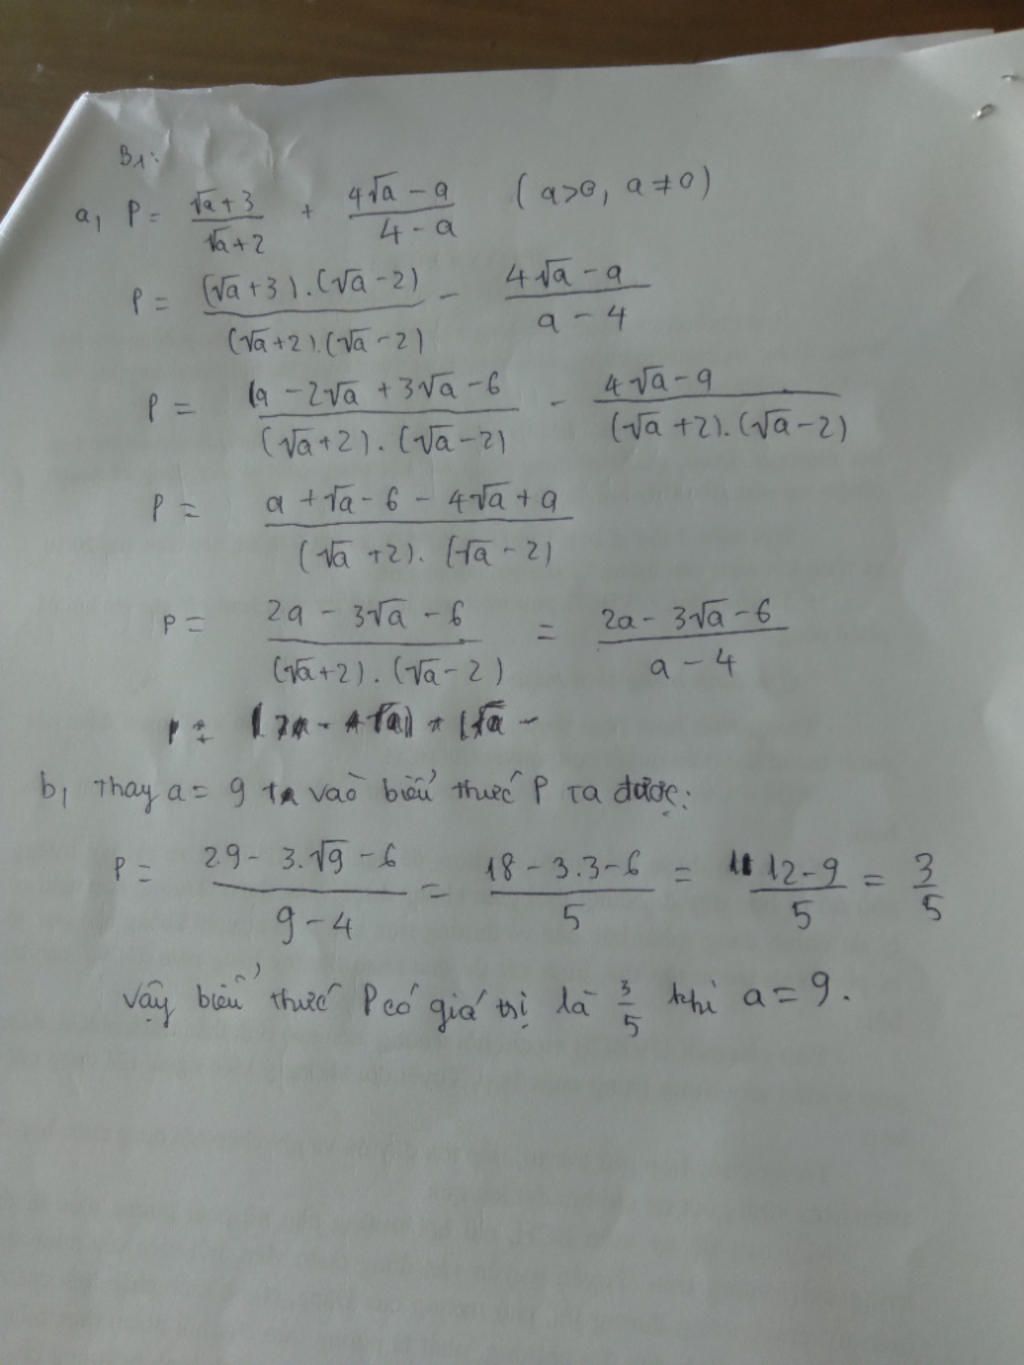 B1:
a, P = (√a + 3)/(√a + 2) + (4√a - a)/(4 - a) (a>0, a ≠ 0)
P = ((√a + 3).(√a - 2))/((√a + 2).(√a - 2)) - (4√a - a)/(a - 4)
P = (a - 2√a + 3√a - 6)/((√a + 2).(√a - 2)) - (4√a - a)/((√a + 2).(√a - 2))
P = (a + √a - 6 - 4√a + a)/((√a + 2).(√a - 2))
P = (2a - 3√a - 6)/((√a + 2).(√a - 2)) = (2a - 3√a - 6)/(a - 4)
b, Thay a = 9 vào biểu thức P ta được:
P = (2.9 - 3.√9 - 6)/(9 - 4) = (18 - 3.3 - 6)/5 = (12 - 9)/5 = 3/5
Vậy biểu thức P có giá trị là 3/5 khi a = 9.